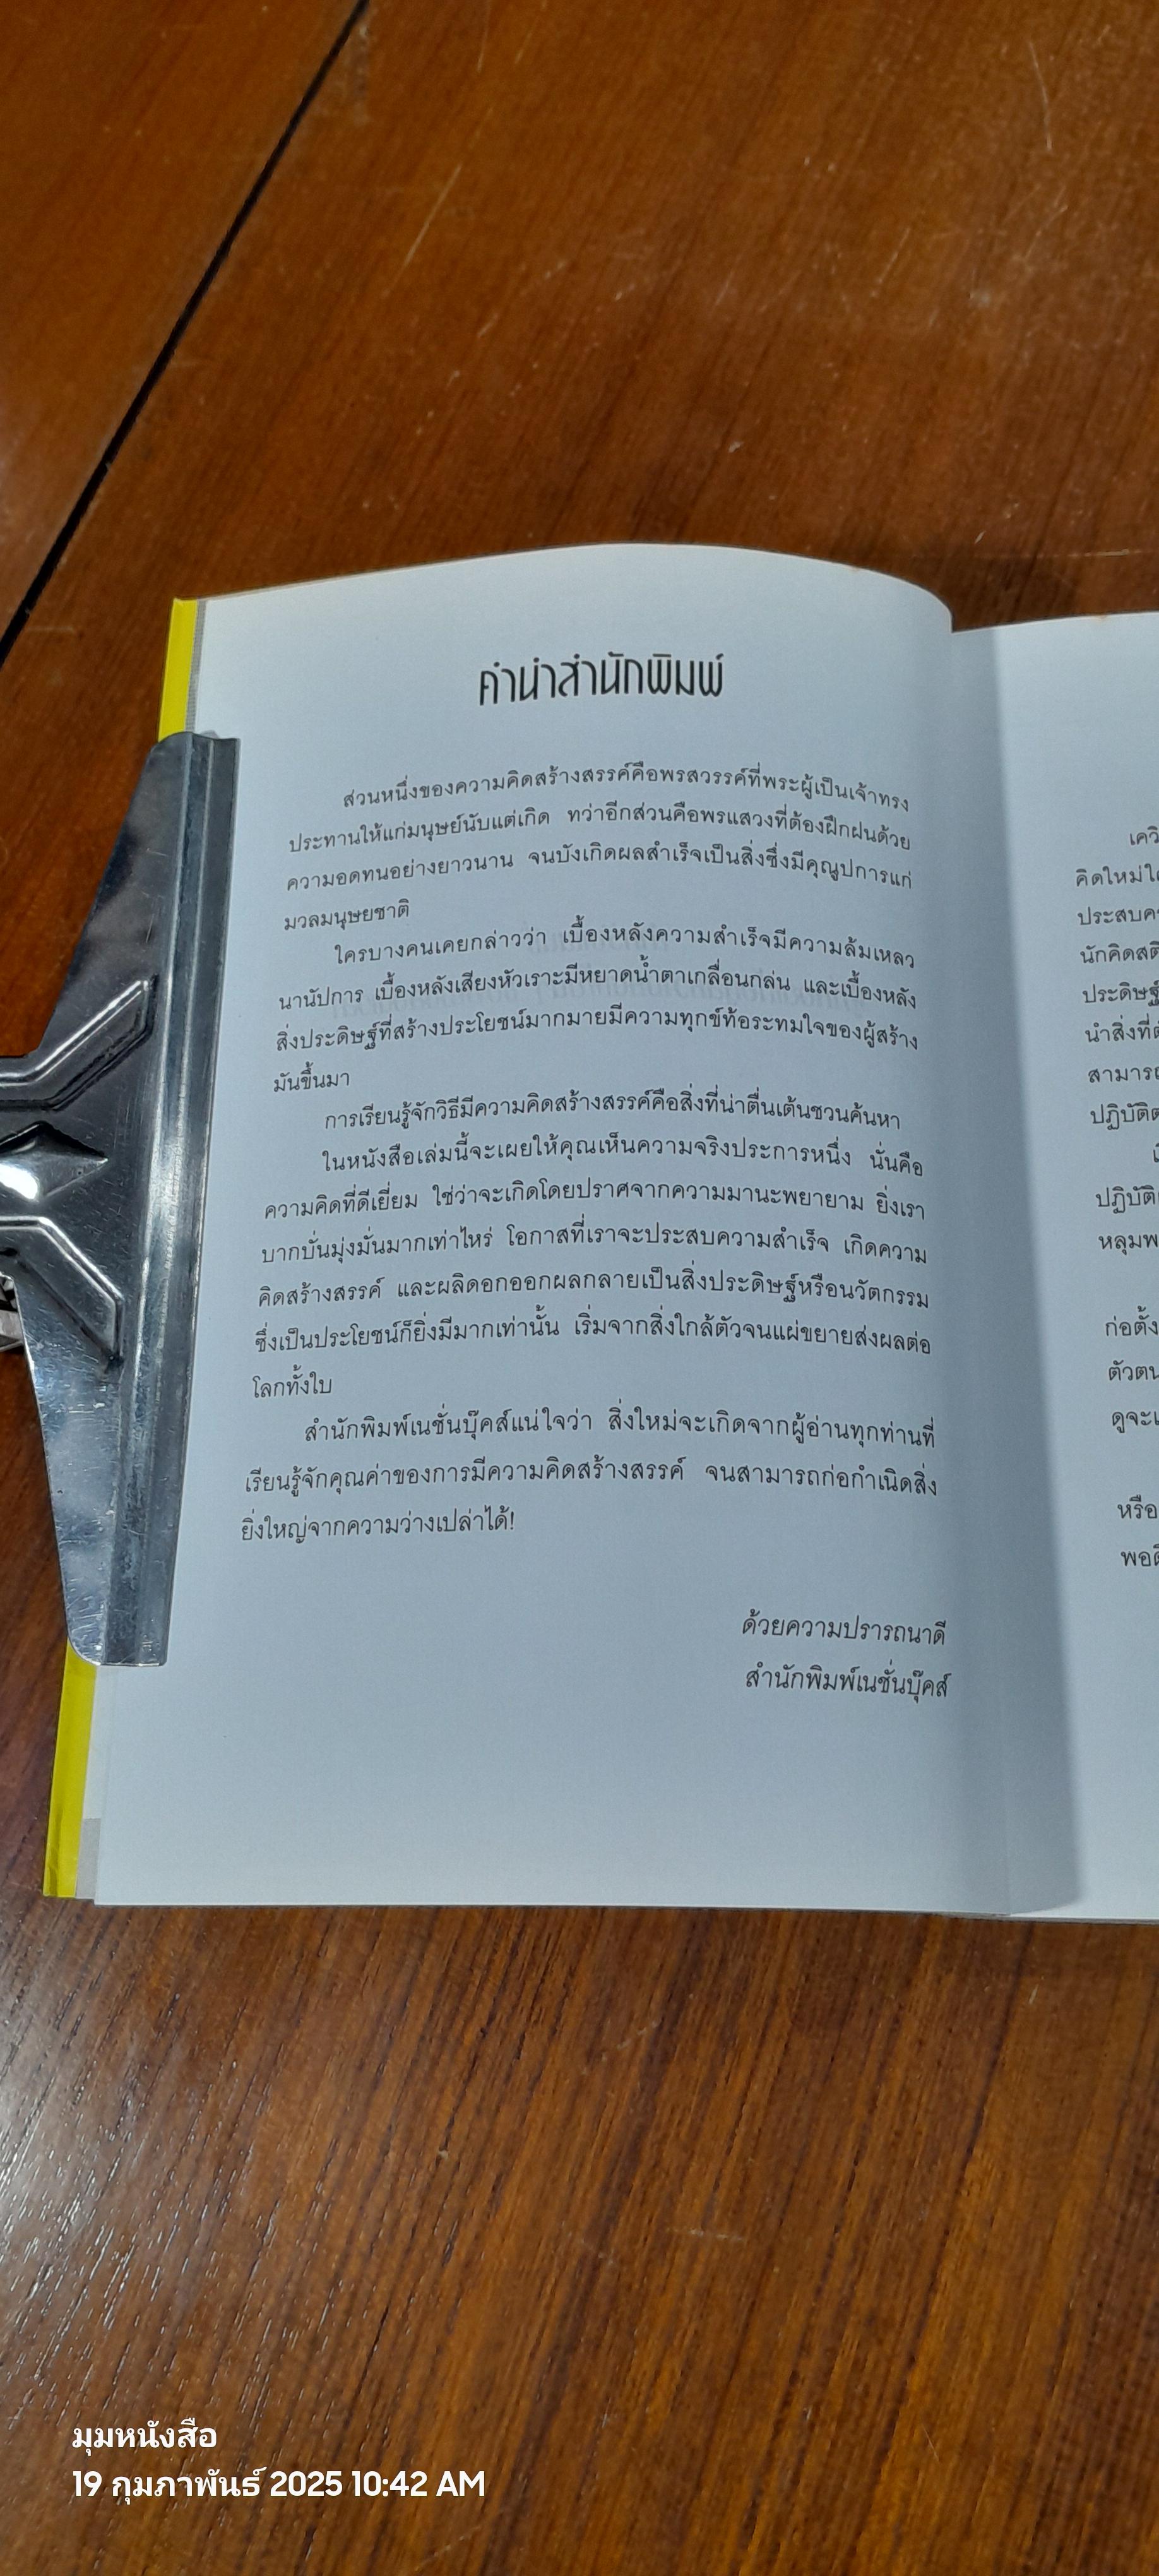 คำนำสำนักพิมพ์
ส่วนหนึ่งของความคิดสร้างสรรค์คือพรสวรรค์ที่พระผู้เป็นเจ้าทรง
ประทานให้แก่มนุษย์นับแต่เกิด ทว่าอีกส่วนคือพรแสวงที่ต้องฝึกฝนด้วย
ความอดทนอย่างยาวนาน จนบังเกิดผลสำเร็จเป็นสิ่งซึ่งมีคุณูปการแก่
มวลมนุษยชาติ
ใครบางคนเคยกล่าวว่า เบื้องหลังความสำเร็จมีความล้มเหลว
นานัปการ เบื้องหลังเสียงหัวเราะมีหยาดน้ำตาเกลื่อนกล่น และเบื้องหลัง
สิ่งประดิษฐ์ที่สร้างประโยชน์มากมายมีความทุกข์ท้อระทมใจของผู้สร้าง
มันขึ้นมา
การเรียนรู้จักวิธีมีความคิดสร้างสรรค์คือสิ่งที่น่าตื่นเต้นชวนค้นหา
ในหนังสือเล่มนี้จะเผยให้คุณเห็นความจริงประการหนึ่ง นั่นคือ
ความคิดที่ดีเยี่ยม ใช่ว่าจะเกิดโดยปราศจากความมานะพยายาม ยิ่งเรา
บากบั่นมุ่งมั่นมากเท่าไหร่ โอกาสที่เราจะประสบความสำเร็จ เกิดความ
คิดสร้างสรรค์ และผลิดอกออกผลกลายเป็นสิ่งประดิษฐ์หรือนวัตกรรม
ซึ่งเป็นประโยชน์ก็ยิ่งมีมากเท่านั้น เริ่มจากสิ่งใกล้ตัวจนแผ่ขยายส่งผลต่อ
โลกทั้งใบ
สำนักพิมพ์เนชั่นบุ๊คส์แน่ใจว่า สิ่งใหม่จะเกิดจากผู้อ่านทุกท่านที่
เรียนรู้จักคุณค่าของการมีความคิดสร้างสรรค์ จนสามารถก่อกำเนิดสิ่ง
ยิ่งใหญ่จากความว่างเปล่าได้!
ด้วยความปรารถนาดี
สำนักพิมพ์เนชั่นบุ๊คส์
คิดใหม่
นักคิด
นำสิ่งที่
ก่อตั้ง
ตัวตน
หรือ
มุมหนังสือ
19 กุมภาพันธ์ 2025 10:42 AM